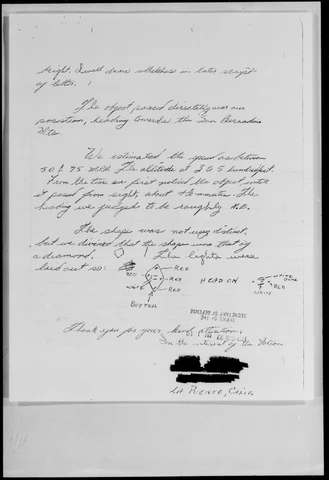 bright. I will draw sketches in later script
of letter.
The object passed directly over our
position, heading towards the San Bernardino
Mts.
We estimated the speed as between
50 & 75 M.P.H. The altitude at 3 to 5 hundred feet.
From the time we first noticed the object until
it passed from sight about minutes. The
heading we judged to be roughly N.E.
The shape was not very distinct,
but we decided that the shape was that of
a diamond. The lights were
laid out so:
RED
RED
RED
RED
WHITE
BOTTOM
HEAD ON
WHITE
RED
WHITE
Thank you for your kind attention.
In the interest of the Nation
LA PUENTE, CALIF.